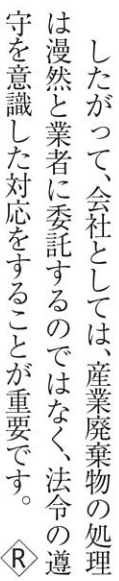 したがって、会社としては、産業廃棄物の処理
は漫然と業者に委託するのではなく、法令の遵
守を意識した対応をすることが重要です。 R